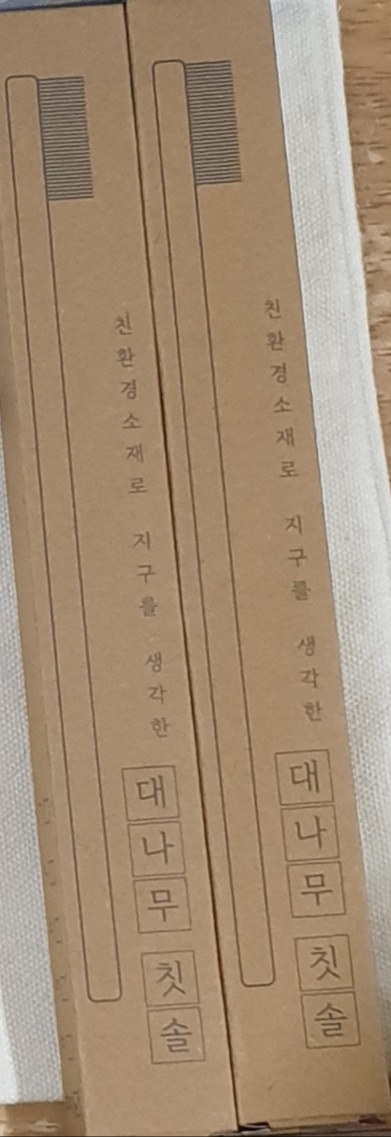 친환경소재로 지구를 생각한
대나무 칫솔
친환경소재로 지구를 생각한
대나무 칫솔